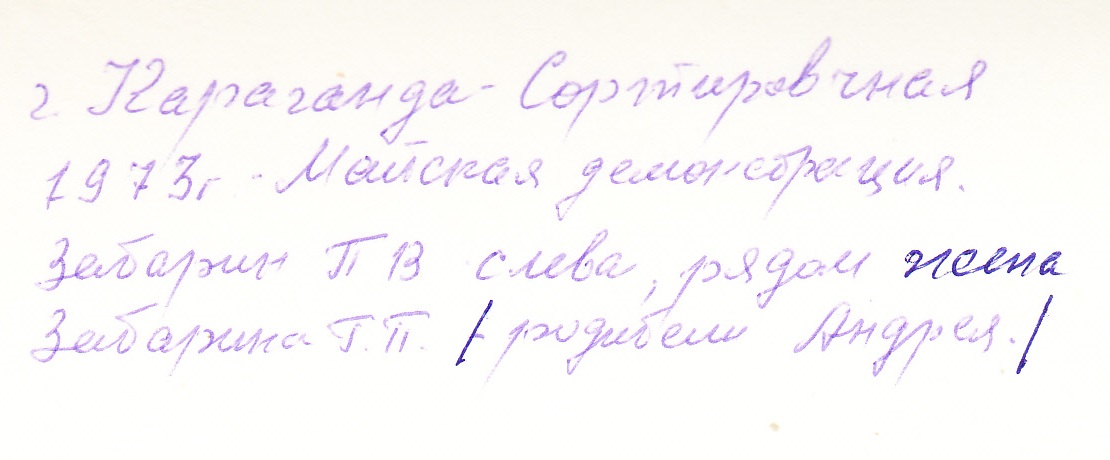 г. Караганда-Сортировчная
1973г. Майская демонстрация.
Забарин П В слева, рядом жена
Забарина Т.П. /родители Андрея./